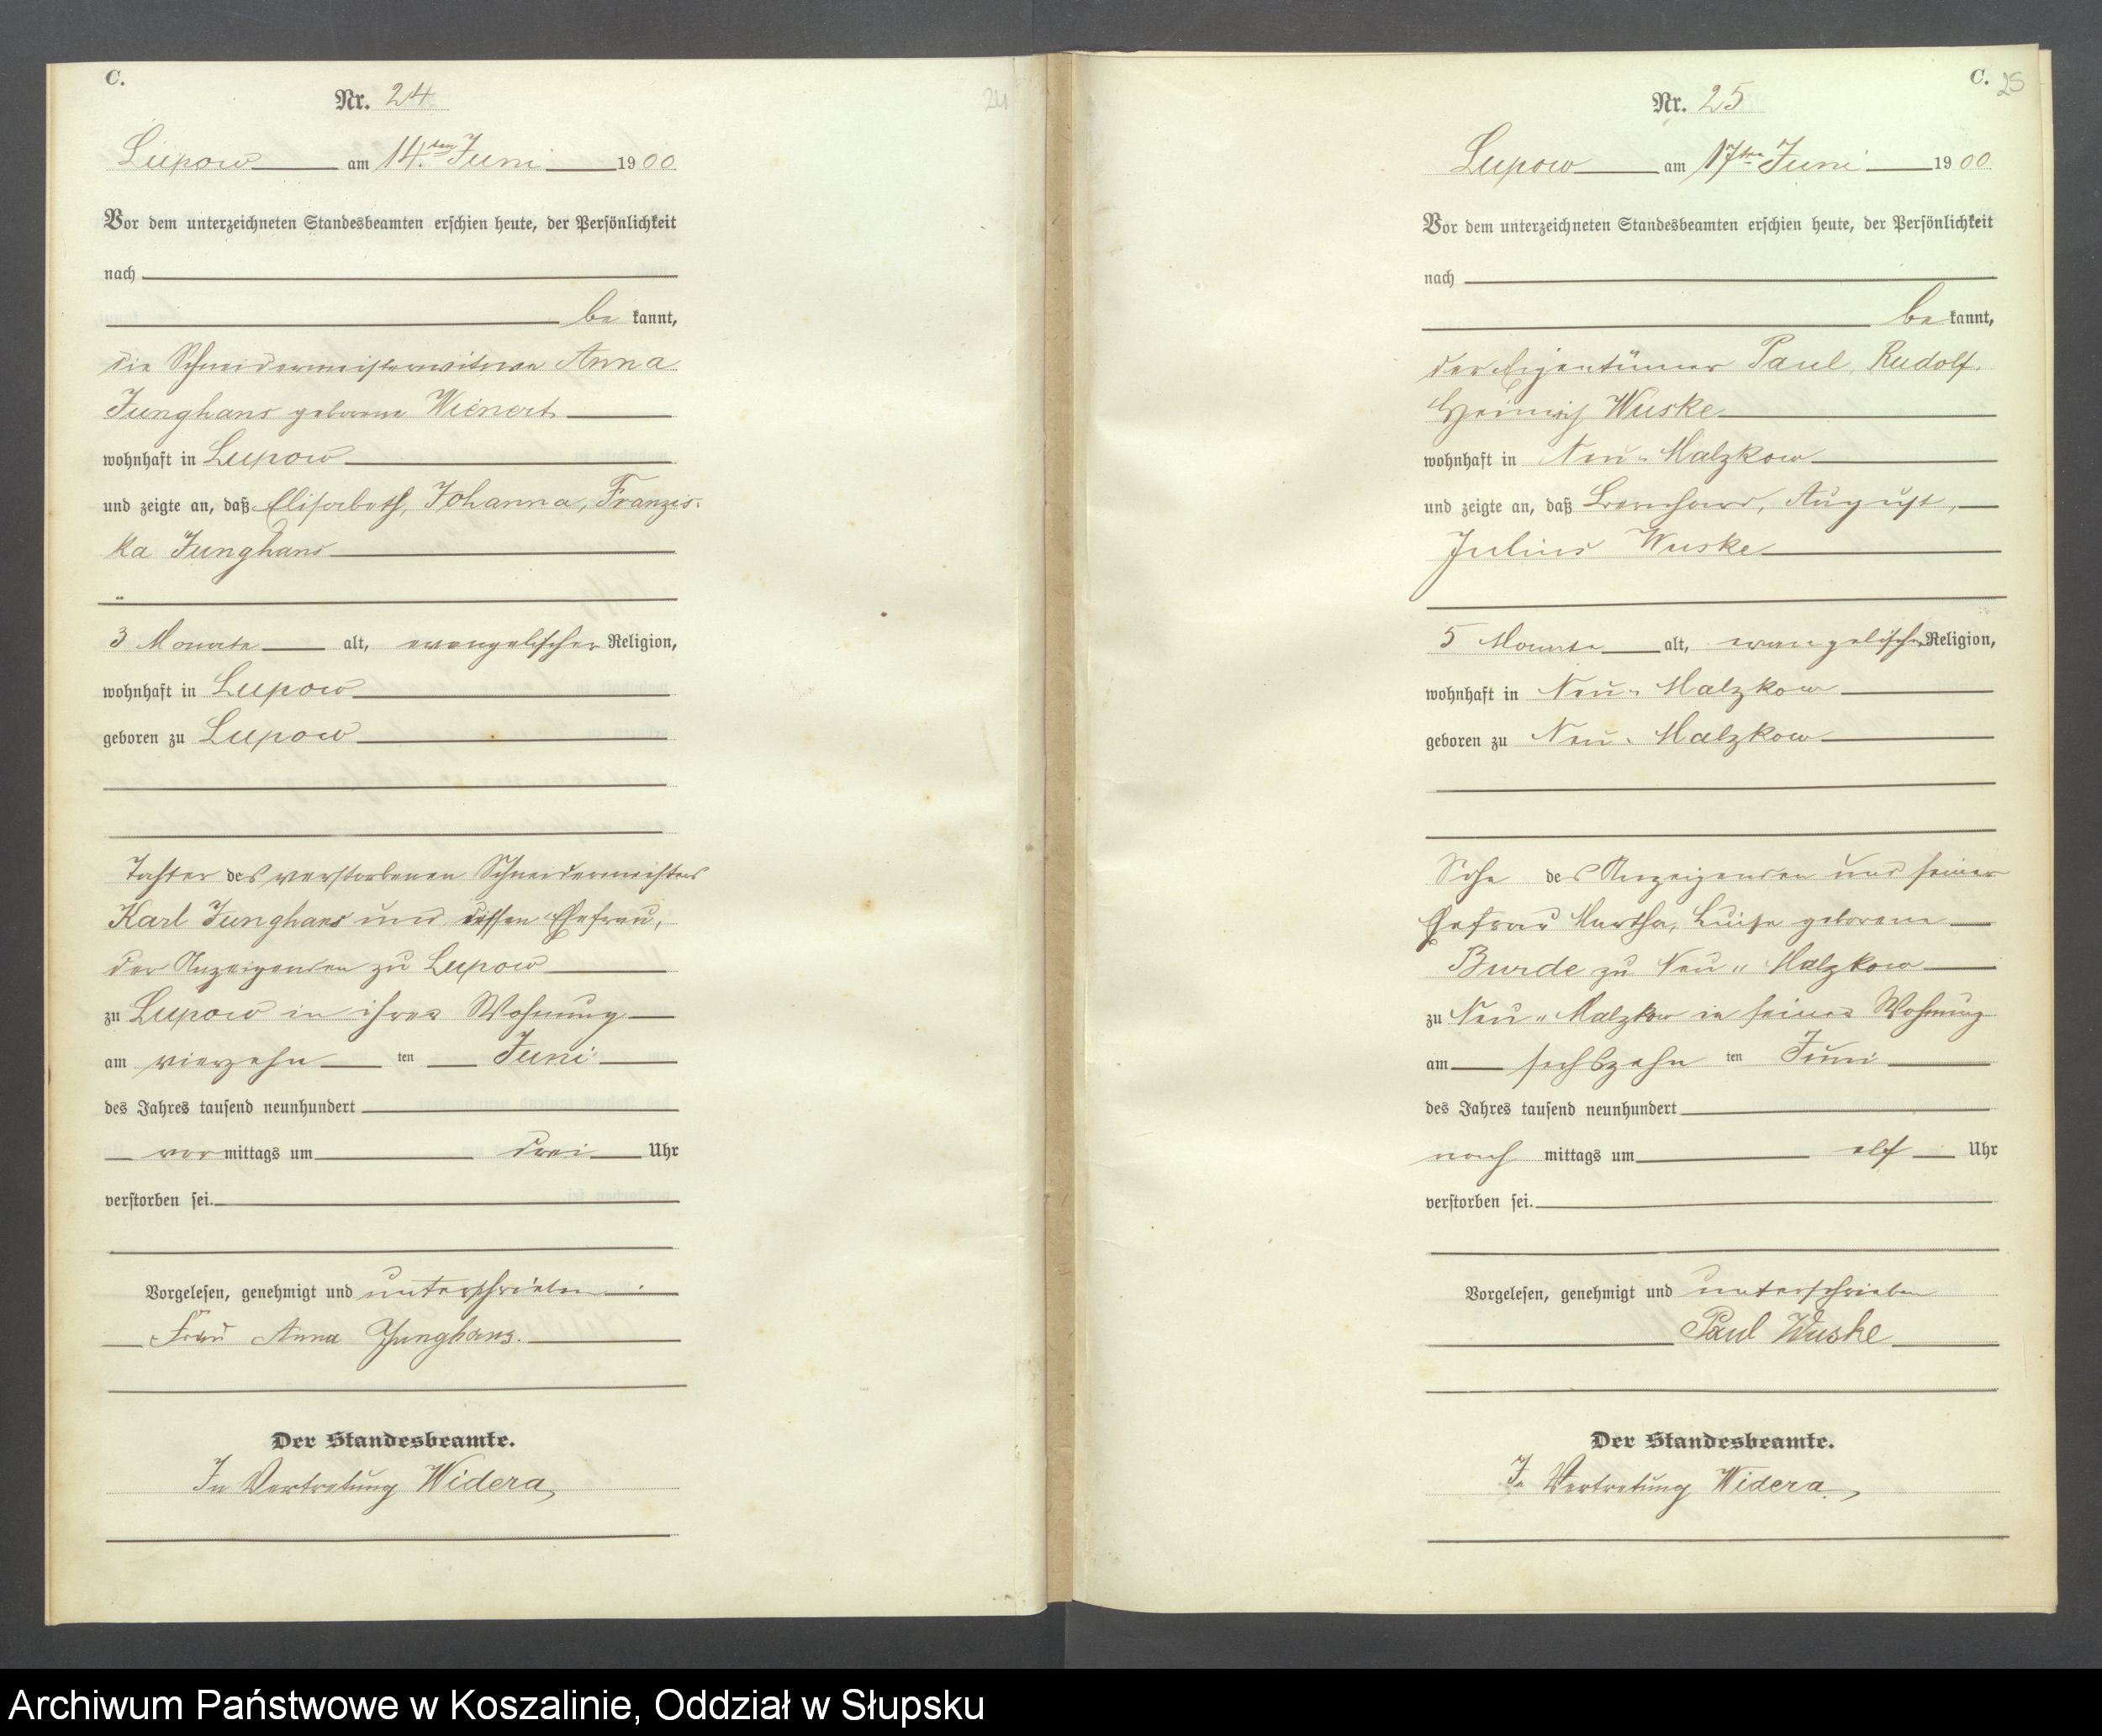 C.
Nr. 24
Lupow am 14.ten Juni 1900
Vor dem unterzeichneten Standesbeamten erschien heute, der Persönlichkeit
nach
be kannt,
die Schneidermeisterwitwe Anna
Junghans geborene Wienert
wohnhaft in Lupow
und zeigte an, daß Elisabeth, Johanna, Franzis-
ka Junghans
3 Monate alt, evangelischer Religion,
wohnhaft in Lupow
geboren zu Lupow
Tochter des verstorbenen Schneidermeisters
Karl Junghans und dessen Ehefrau,
der Anzeigenden zu Lupow
zu Lupow in ihrer Wohnung
am vierzehn ten Juni
des Jahres tausend neunhundert
vor mittags um drei Uhr
verstorben sei.
Vorgelesen, genehmigt und unterschrieben
Frau Anna Junghans.
Der Standesbeamte.
In Vertretung Widera
24
C. 25
Nr. 25
Lupow am 17ten Juni 1900
Vor dem unterzeichneten Standesbeamten erschien heute, der Persönlichkeit
nach
be kannt,
der Eigentümer Paul, Rudolf,
Heinrich Wuske
wohnhaft in Neu-Malzkow
und zeigte an, daß Bernhard, August,
Julius Wuske
5 Monate alt, evangelischer Religion,
wohnhaft in Neu-Malzkow
geboren zu Neu-Malzkow
Sohn des Anzeigenden und seiner
Ehefrau Martha, Luise geborene
Burde zu Neu-Malzkow
zu Neu-Malzkow in seiner Wohnung
am sechszehn ten Juni
des Jahres tausend neunhundert
nach mittags um elf Uhr
verstorben sei.
Vorgelesen, genehmigt und unterschrieben
Paul Wuske
Der Standesbeamte.
In Vertretung Widera
Archiwum Państwowe w Koszalinie, Oddział w Słupsku